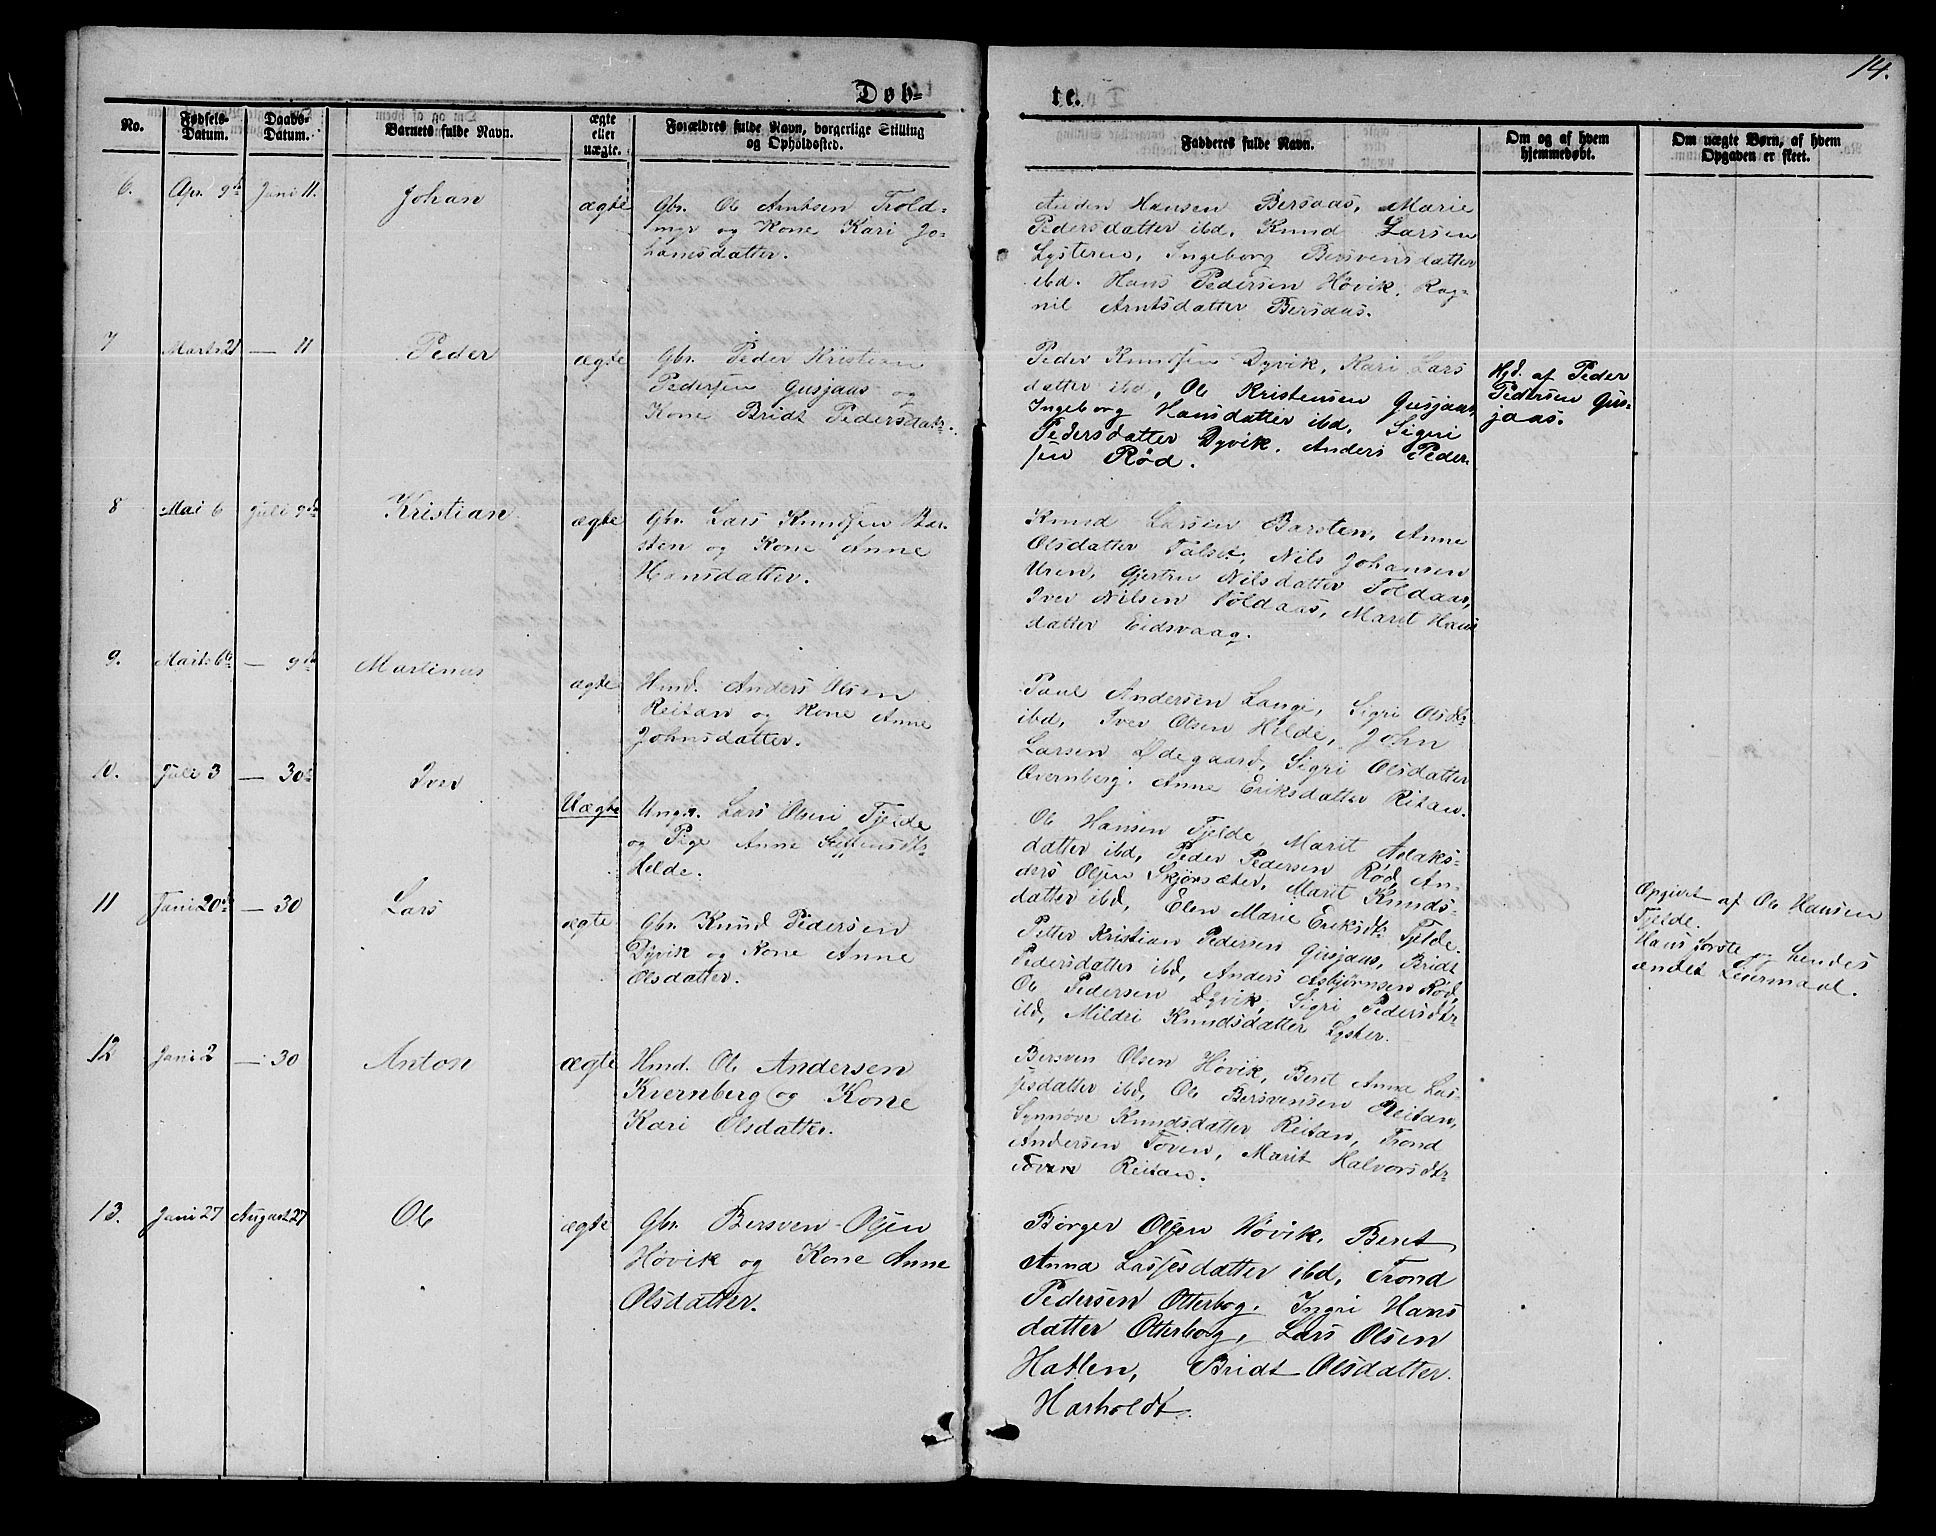 14.
Døb-
te.
No.
Fødsels-
Datum.
Daabs-
Datum.
Barnets fulde Navn.
ægte
eller
uægte.
Forældres fulde Navn, borgerlige Stilling
og Opholdssted.
Fadderes fulde Navn.
Om og af hvem
hjemmedøbt.
Om uægte Børn, af hvem
Opgaven er skeet.
6. Apr. 9de Juni 11. Johan ægte
Gbr. Ole Arntsen Trold-
myr og Kone Kari Jo-
hansdatter.
Auden Hansen Bersaas, Marie
Pedersdatter ibd, Knud Larsen
Lysteren, Ingeborg Bersvensdatter
ibd. Hans Pedersen Høvik, Rag-
nil Arntsdatter Bersaas.
7 Marts 21 — 11 Peder ægte
Gbr. Peder Kristian
Pedersen Gusjaas og
Kone Bridt Pedersdatr.
Peder Knudsen Dyvik, Kari Lars
datter ibd, Ole Kristensen Gusjaas,
Ingeborg Hansdatter ibd, Sigri
Pedersdatter Dyvik, Anders Peder-
sen Rød.
Hjd. af Peder
Pedersen Gus-
jaas.
8 Mai 6 Juli 9de Kristian ægte
Gbr. Lars Knudsen Bar-
sten og Kone Anne
Hansdatter.
Knud Larsen Barsten, Anne
Olsdatter Talset, Nils Johansen
Uren, Gjertru Nilsdatter Toldaas,
Iver Nilsen Toldaas, Marit Hans
datter Eidsvaag.
9. Marts 6te — 9de Martinus ægte
Hmd. Anders Olsen
Reitan og Kone Anne
Johnsdatter.
Paul Andersen Lange, Sigri Olsdtr
ibd, Iver Olsen Hilde, John
Larsen Ødegaard, Sigri Olsdatter
Qvernberg. Anne Eriksdatter Reitan.
10. Juli 3 — 30te Iver Uægte
Ungk. Lars Olsen Fjelde
og Pige Anne
Hilde.
Ole Hansen Fjelde, Marit Aslaks-
datter ibd, Peder Pedersen Rød, An-
ders Olsen Skjørsæter, Marit Knuds-
datter ibd, Elen Marie Eriksdtr Fjelde.
Opgivet af Ole Hansen
Fjelde.
Hans første og hendes
andet Leiermaal.
11 Juni 20de — 30 Lars ægte
Gbr. Knud Pedersen
Dyvik og Kone Anne
Olsdatter.
Petter Kristian Pedersen Gusjaas, Bridt
Pedersdatter ibd, Anders Asbjørnsen Rød,
Ole Pedersen Dyvik, Sigri Pedersdtr
ibd, Mildri Knudsdatter Lyster.
12 Juni 2 — 30 Anton ægte
Hmd. Ole Andersen
Kvernberg og Kone
Kari Olsdatter.
Bersven Olsen Høvik, Beret Anna Las-
sesdatter ibd, Ole Bersvensen Reitan,
Synnøve Knudsdatter Reitan, Trond
Andersen Toven, Marit Halvorsdtr
Toven Reitan.
13. Juni 27 August 27 Ole ægte
Gbr. Bersven Olsen
Høvik og Kone Anne
Olsdatter.
Børger Olsen Høvik, Beret
Anna Lassesdatter ibd, Trond
Pedersen Otterbog, Ingri Hans
datter Otterbog, Lars Olsen
Hatlen, Bridt Olsdatter
Harholdt.